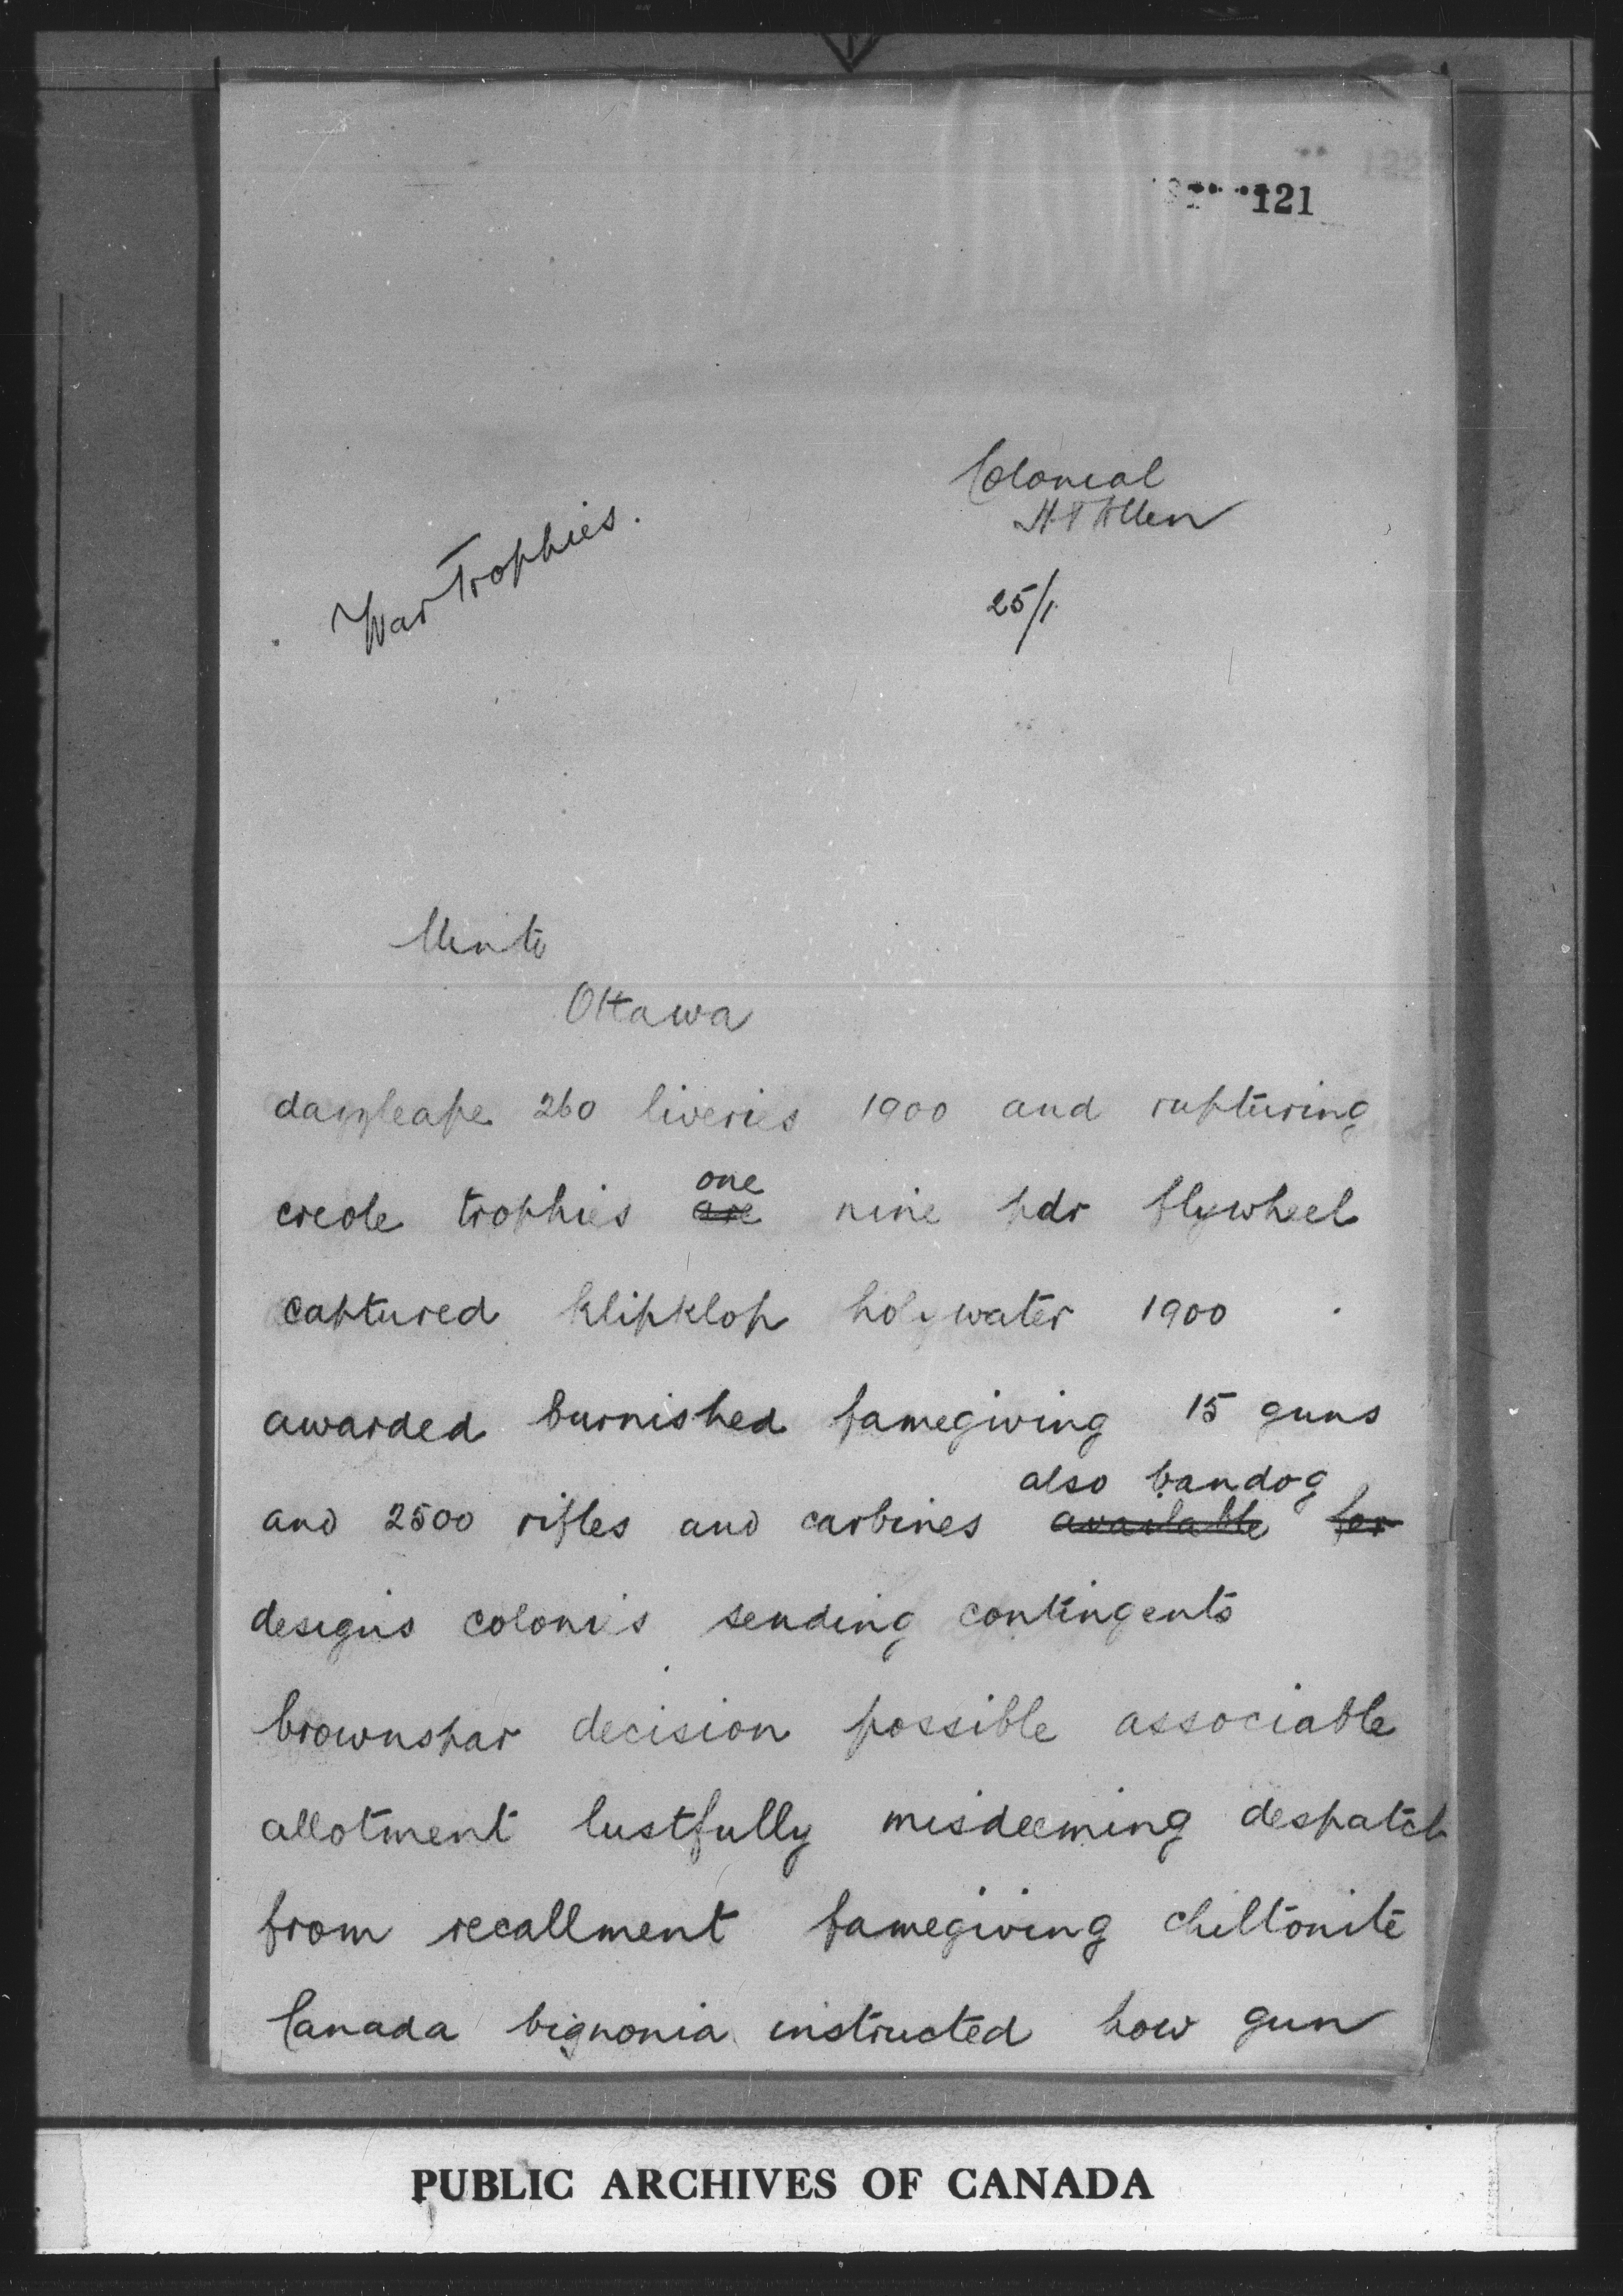 121
Colonial
H T Allen
War Trophies.
25/1.
Minto
Ottawa
260 liveries 1900 and rupturing
creole trophies ~~are~~ one nine pdr flywheel
captured klipklop holywater 1900
awarded burnished famegiving 15 guns
also bandog
and 2500 rifles and carbines ~~available~~ ~~for~~
designs colonies sending contingents
brownspar decision possible associable
allotment lustfully misdeeming despatch
from recallment famegiving chiltonite
Canada bignonia instructed how gun
PUBLIC ARCHIVES OF CANADA